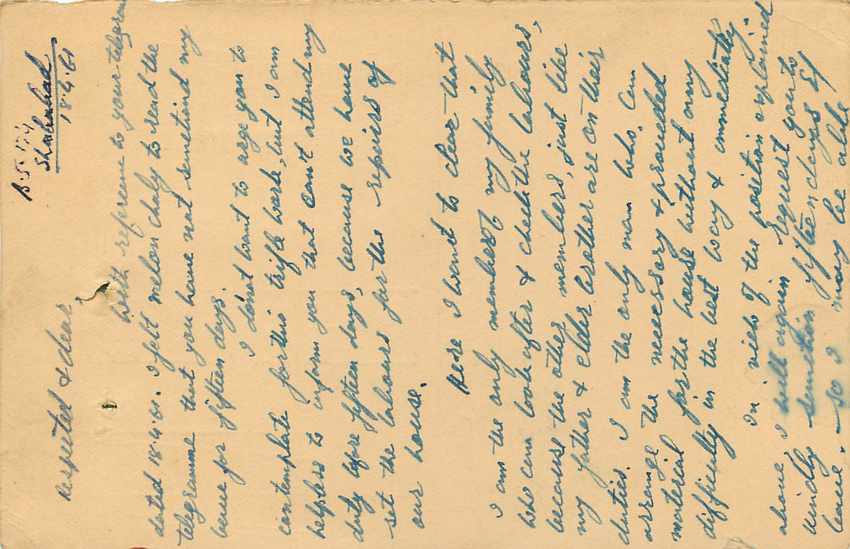 B.S.
18.4.61
Respected & dear
With refrence to your telegram
dated 18.4.61. I felt melon chaly to read the
telegramme that you have not senctiond my
leave for fifteen days.
I don't want to urge you to
contemplate for this trifle work, but I am
helpless to inform you that can't attend my
duty before fifteen days, because we have
set the labours for the repairs of
our house.
Here I want to clear that
I am the only member of my family
who can look after & check the labours,
because the other members, just like
my father & elder brother are on their
duties. I am the only man who can
arrange the necessary & provided
material for the house without any
difficulty in the best way & immediately.
In view of the position explained
above, I will again request you to
kindly senction fifteen days EL
leave. So I may be able